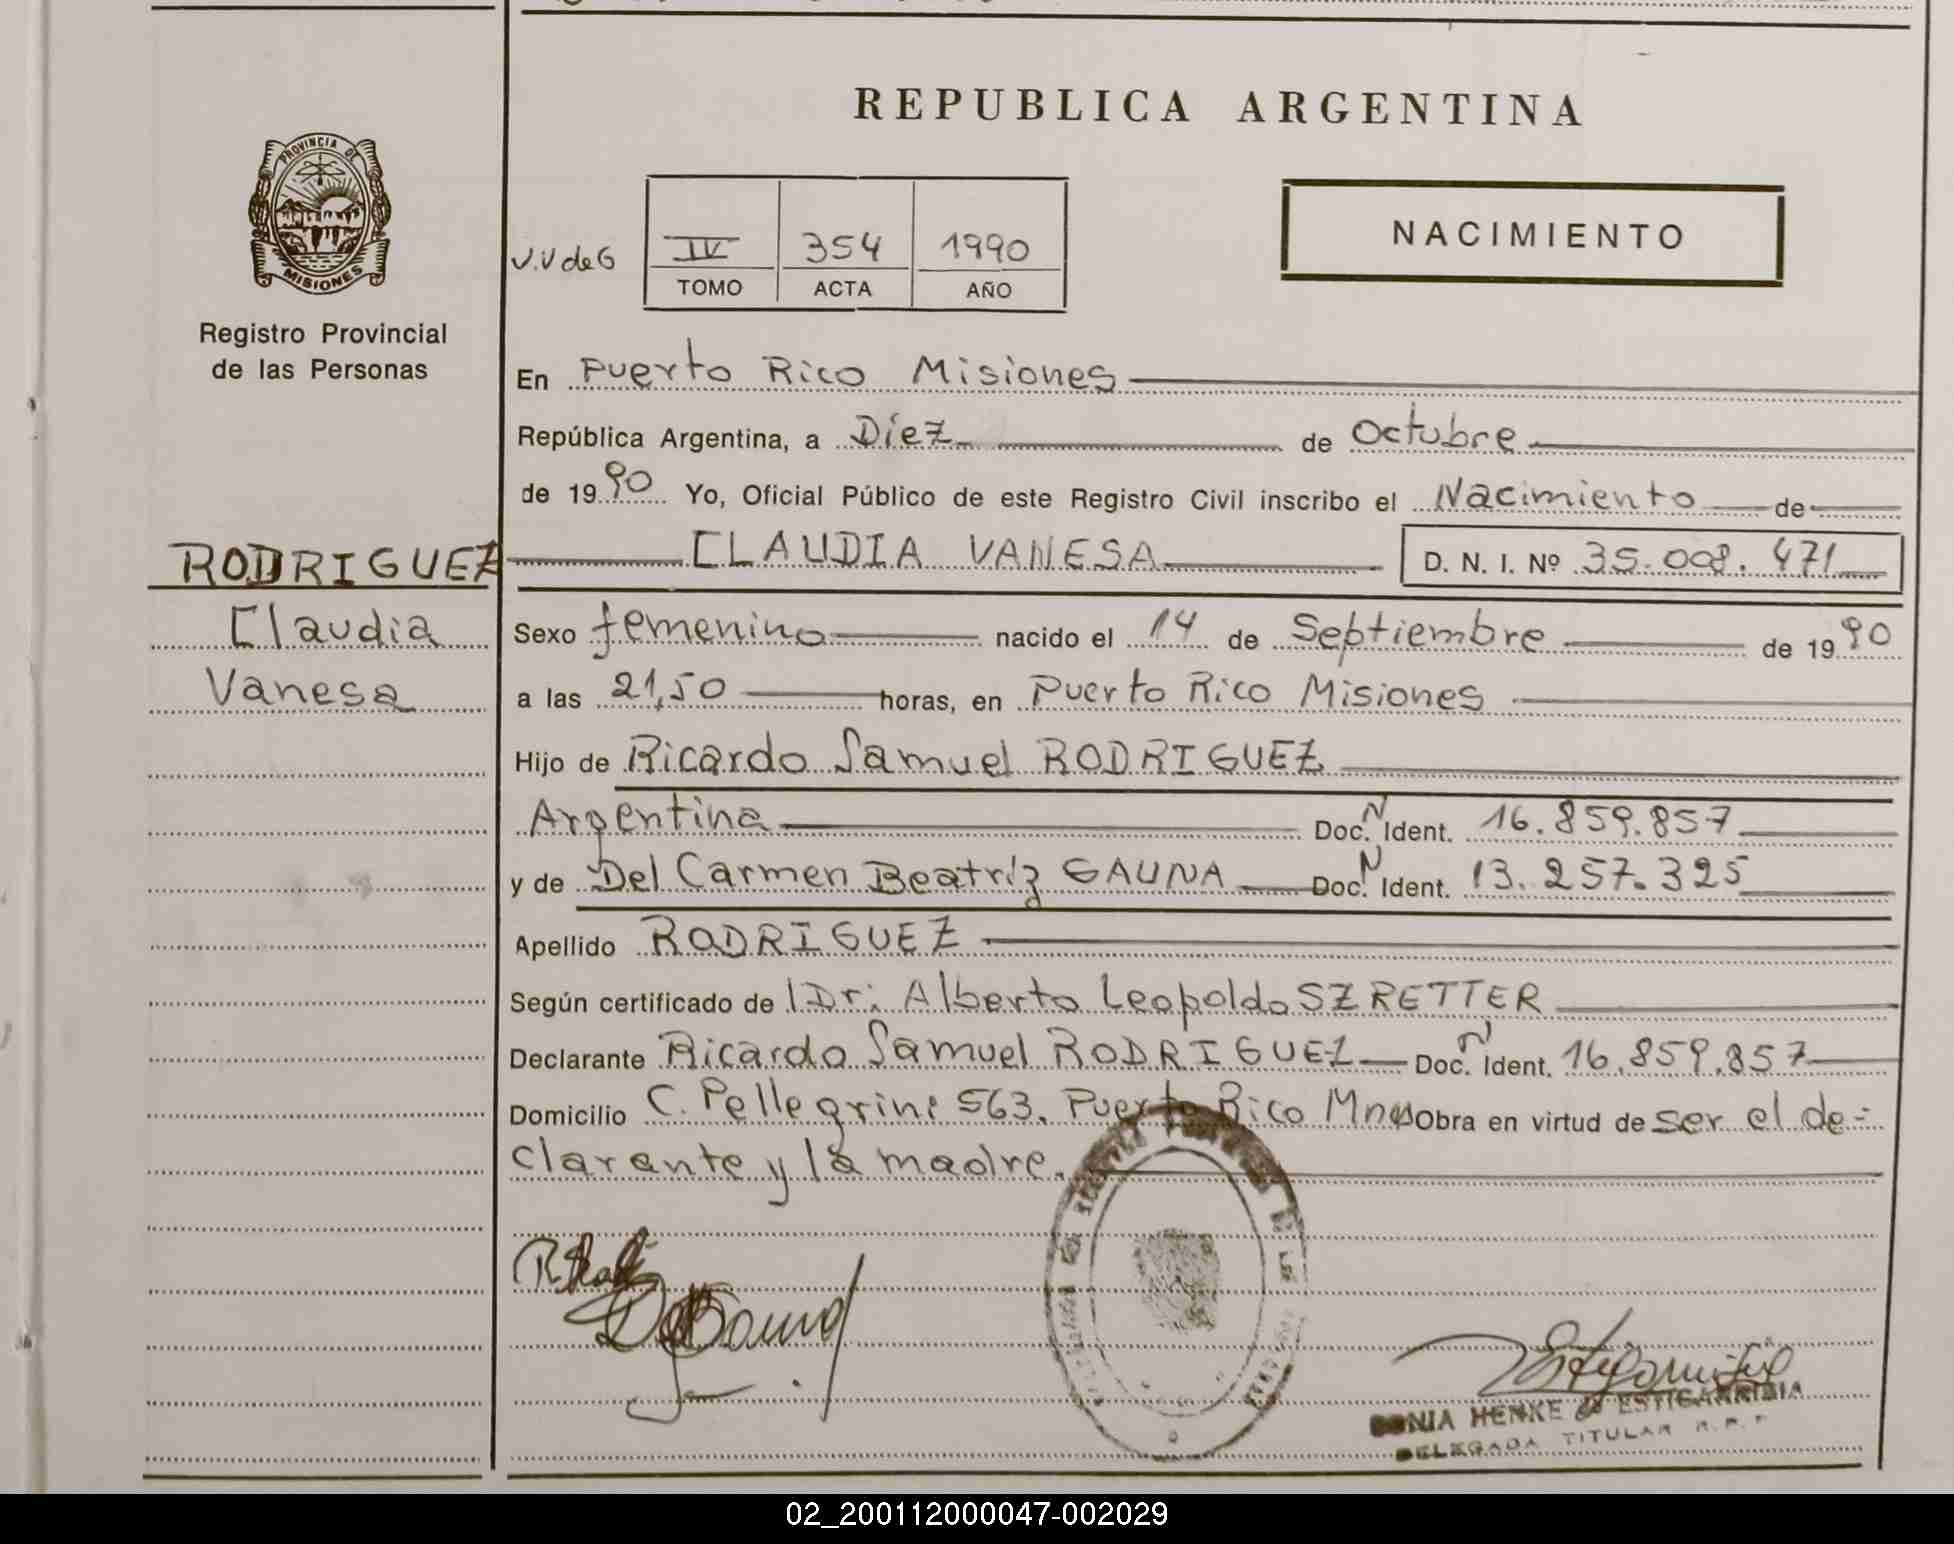 REPUBLICA ARGENTINA
PROVINCIA DE
MISIONES
Registro Provincial
de las Personas
V.V de G
IV 354 1990
TOMO ACTA AÑO
NACIMIENTO
En Puerto Rico Misiones
República Argentina, a Diez de Octubre
de 1990 Yo, Oficial Público de este Registro Civil inscribo el Nacimiento de
RODRIGUEZ
Claudia
Vanesa
CLAUDIA VANESA D. N. I. Nº 35.008.471
Sexo femenino nacido el 14 de Septiembre de 1990
a las 21,50 horas, en Puerto Rico Misiones
Hijo de Ricardo Samuel RODRIGUEZ
Argentina Doc. N Ident. 16.859.857
y de Del Carmen Beatriz GAUNA Doc. N Ident. 13.257.325
Apellido RODRIGUEZ
Según certificado de l Dr: Alberto Leopoldo SZRETTER
Declarante Ricardo Samuel RODRIGUEZ Doc. N Ident. 16.859.857
Domicilio C. Pellegrini 563. Puerto Rico Mnes Obra en virtud de ser el de-
clarante y la madre.
SONIA HENKE de ESTIGARRIBIA
DELEGADA TITULAR R.P.P
02_200112000047-002029